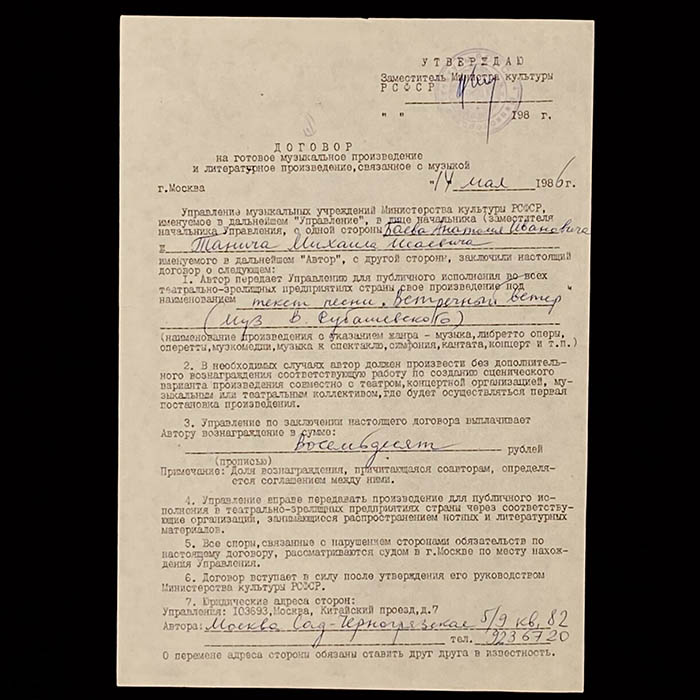 УТВЕРЖДАЮ
Заместитель Министра культуры
РСФСР
" " 198 г.
ДОГОВОР
на готовое музыкальное произведение
и литературное произведение, связанное с музыкой
г.Москва "14 мая 1986 г.
Управление музыкальных учреждений Министерства культуры РСФСР,
именуемое в дальнейшем "Управление", в лице начальника (заместителя
начальника Управления, с одной стороны Баева Анатолия Ивановича
и Танича Михаила Исаевича
именуемого в дальнейшем "Автор", с другой стороны, заключили настоящий
договор о следующем:
I. Автор передает Управлению для публичного исполнения во всех
театрально-зрелищных предприятиях страны свое произведение под
наименованием текст песни "Встречный ветер
(муз В. Рубашевского)
(наименование произведения с указанием жанра - музыка, либретто оперы,
оперетты, музкомедии, музыка к спектаклю, симфония, кантата, концерт и т.п.)
2. В необходимых случаях автор должен произвести без дополнитель-
ного вознаграждения соответствующую работу по созданию сценического
варианта произведения совместно с театром, концертной организацией, му-
зыкальным или театральным коллективом, где будет осуществляться первая
постановка произведения.
3. Управление по заключении настоящего договора выплачивает
Автору вознаграждение в сумме:
Восемьдесят рублей
(прописью)
Примечание: Доля вознаграждения, причитающаяся соавторам, определя-
ется соглашением между ними.
4. Управление вправе передавать произведение для публичного ис-
полнения в театрально-зрелищных предприятиях страны через соответству-
ющие организации, занимающиеся распространением нотных и литературных
материалов.
5. Все споры, связанные с нарушением сторонами обязательств по
настоящему договору, рассматриваются судом в г.Москве по месту нахож-
дения Управления.
6. Договор вступает в силу после утверждения его руководством
Министерства культуры РСФСР.
7. Юридические адреса сторон:
Управления: 103693, Москва, Китайский проезд, д.7
Автора: Москва Сад-Черногрязская 5/9 кв. 82
тел. 9236720
О перемене адреса стороны обязаны ставить друг друга в известность.